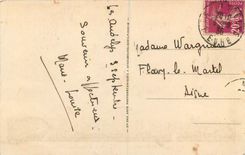 Les Andelys 3 septembre
Souvenir affectueux
Marie-Louise
Madame Wargnier
Flavy-le-Martel
Aisne
20